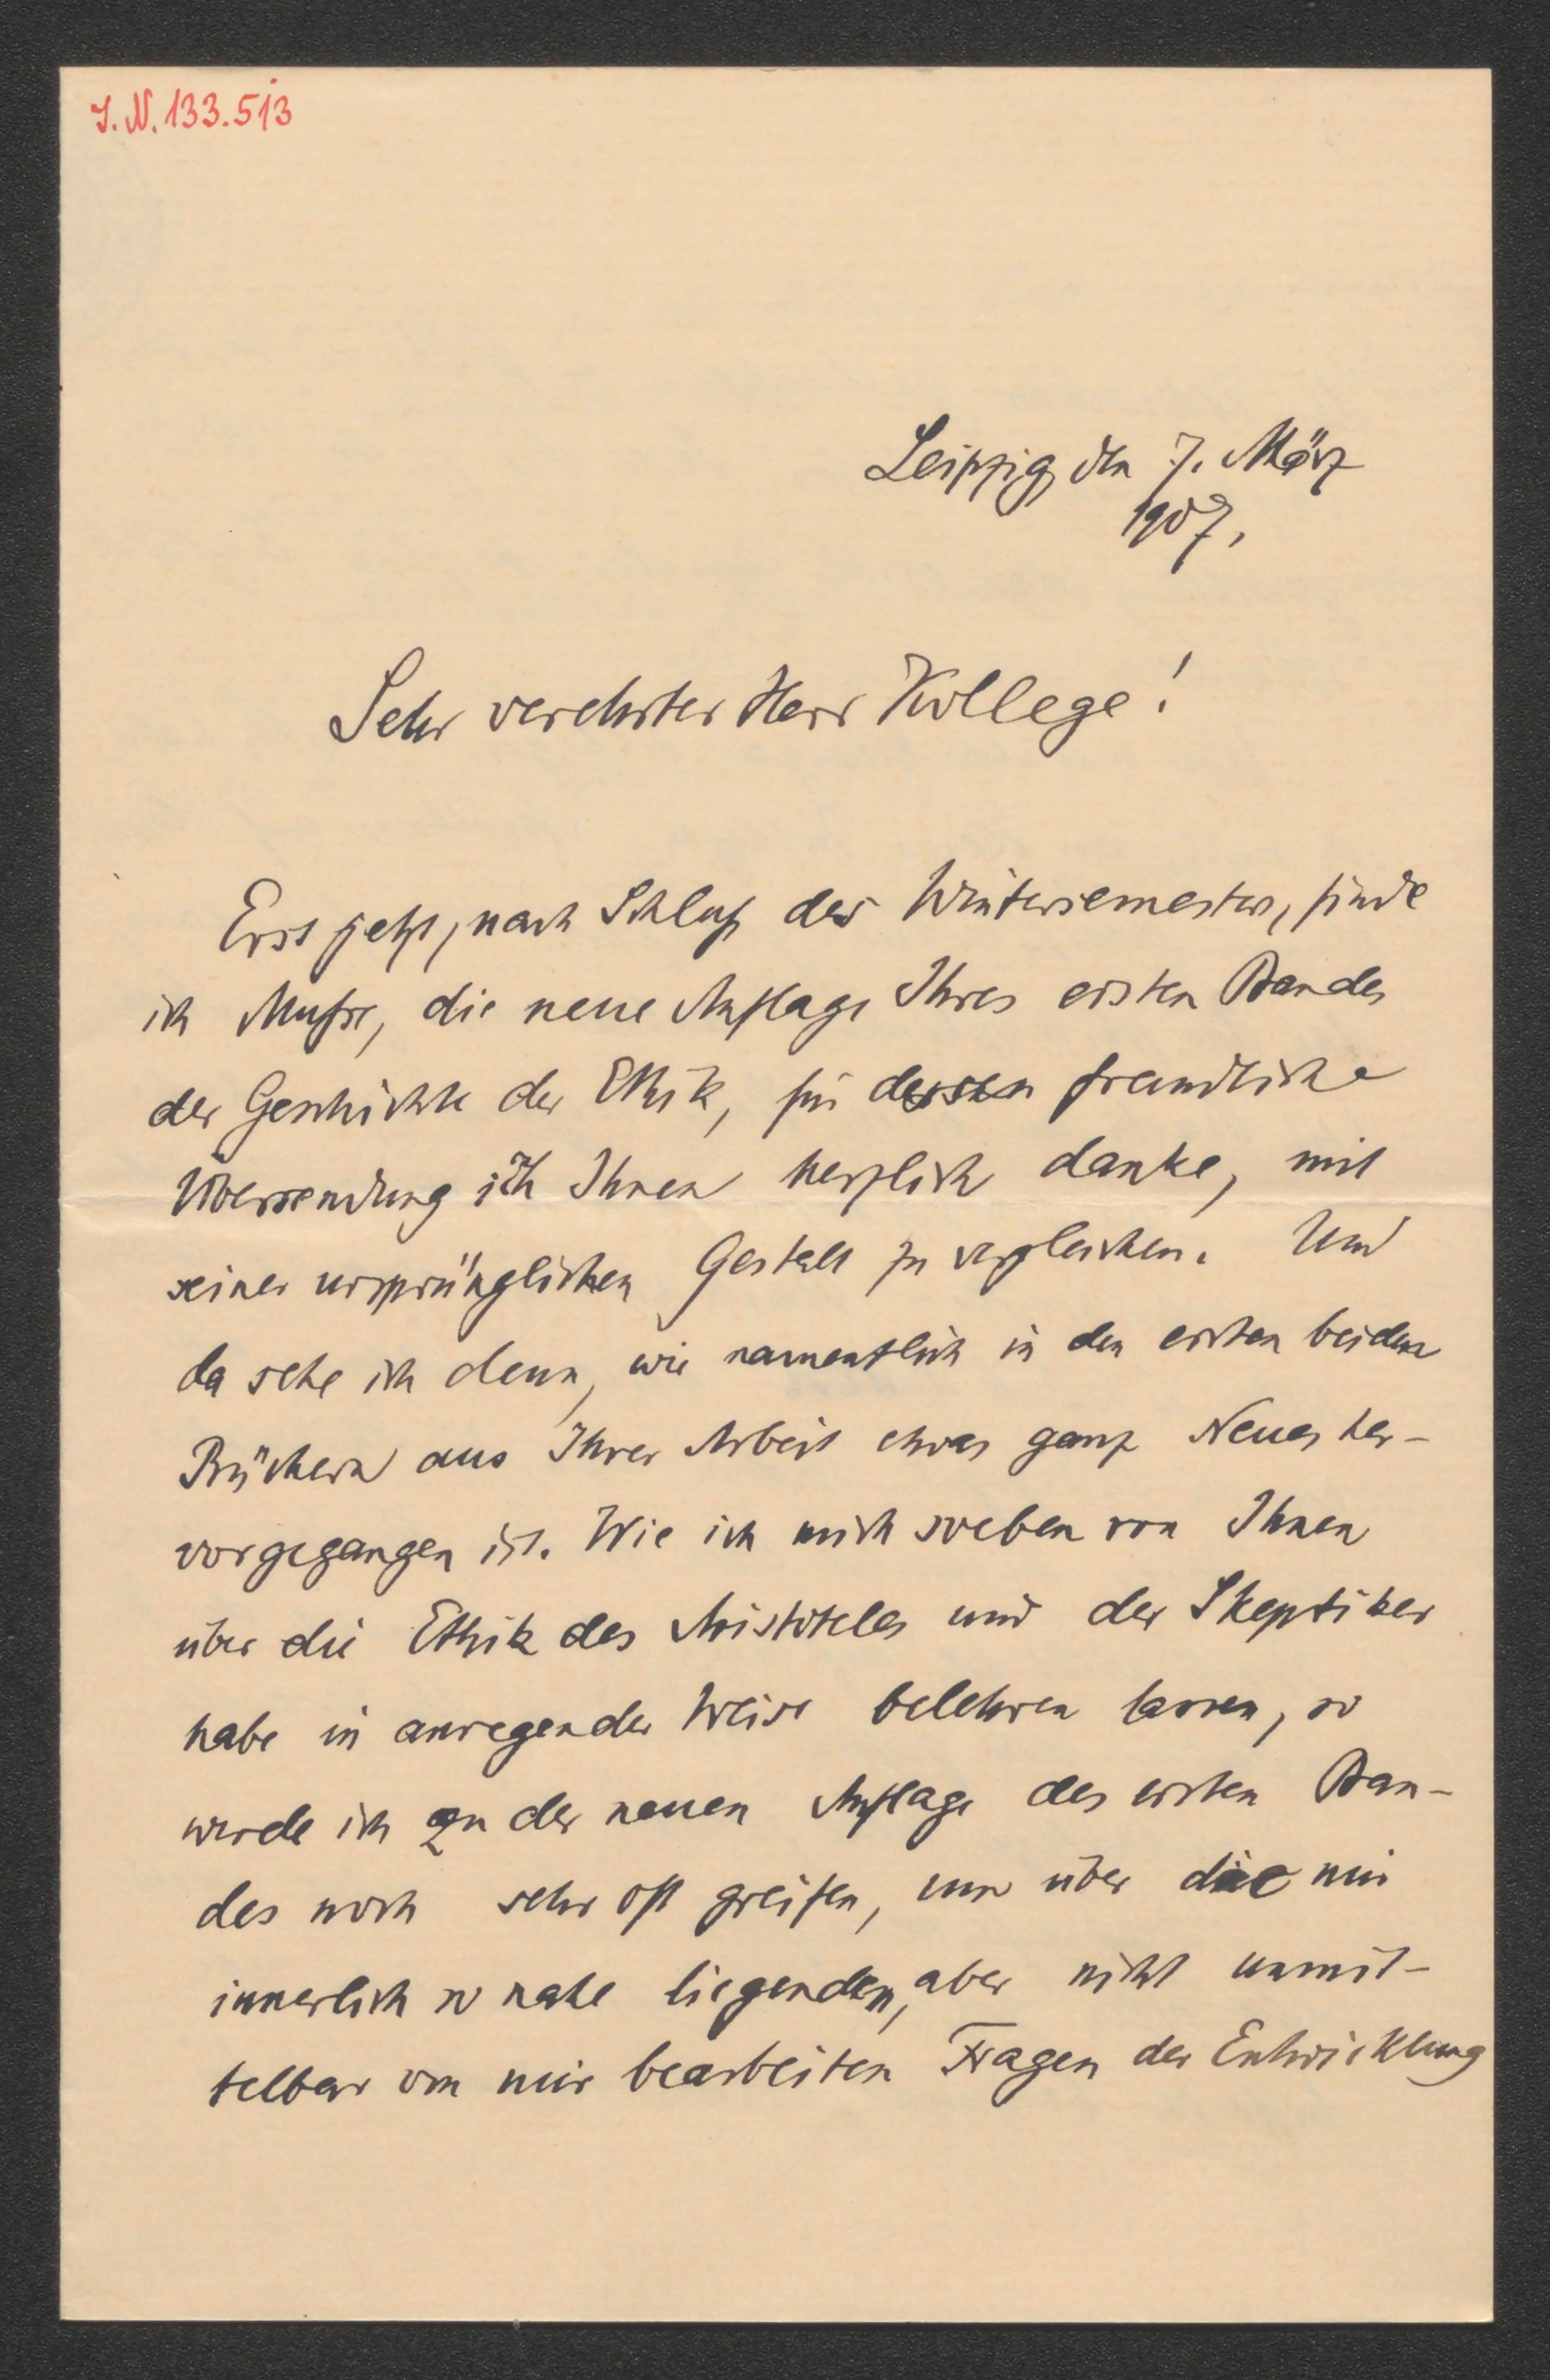 I. N. 133.513
Leipzig, den 7. März
1907.
Sehr verehrter Herr Kollege!
Erst jetzt, nach Schluß des Wintersemesters, finde
ich Muße, die neue Auflage Ihres ersten Bandes
der Geschichte der Ethik, für dessen freundliche
Übersendung ich Ihnen herzlich danke, mit
seiner ursprünglichen Gestalt zu vergleichen. Und
da sehe ich denn, wie namentlich in den ersten beiden
Büchern aus Ihrer Arbeit etwas ganz Neues her-
vorgegangen ist. Wie ich mich soeben von Ihnen
über die Ethik des Aristoteles und der Skeptiker
habe in anregender Weise belehren lassen, so
werde ich zu der neuen Auflage des ersten Ban-
des noch sehr oft greifen, um über die mir
innerlich so nahe liegenden, aber nicht unmit-
telbar von mir bearbeiten Fragen der Entwicklung